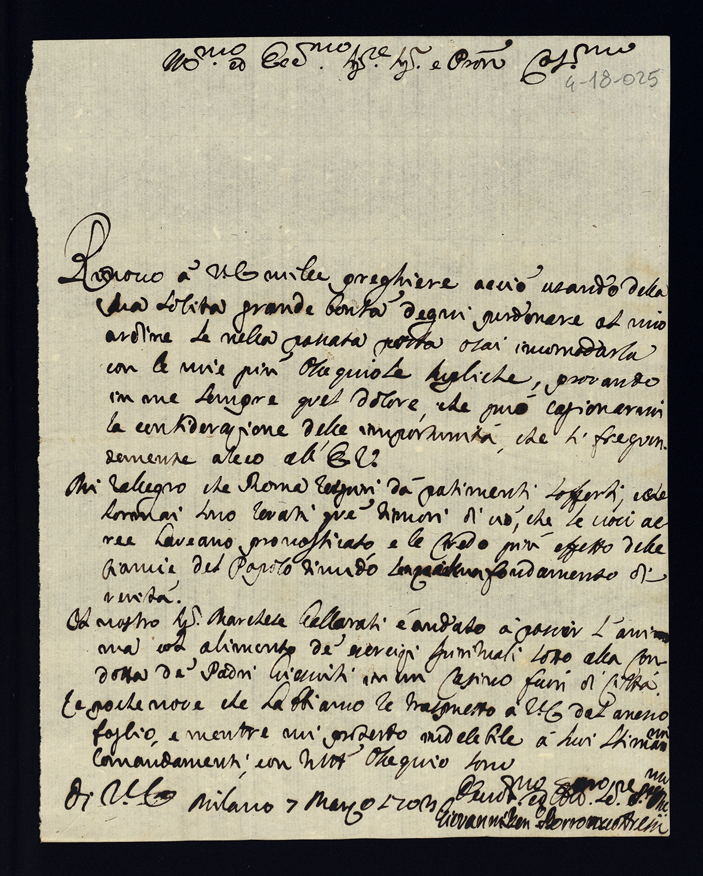 Ill.mo ed Ecc.mo Sig.re Sig.r e Pron Col.mo
4-18-025
Rinovo à V.E. mille preghiere acciò usando della
sua solita grande bontà degni perdonare al mio
ardire se nella passata posta osai incomodarla
con le mie più ossequiose suppliche, provando
in me sempre quel dolore, che può cagionarmi
la consideratione delle importunità, che sì frequen-
temente reco all' E.V.
Mi rallegro che Roma respiri da patimenti sofferti, e che
ormai sono levati que' timori di ciò, che le voci ae-
ree haveano pronosticato e le credo più effetto delle
del Popolo timido fondamento di
verità.
Il nostro Sig.r Marchese Gallarati è andato à pascer l'ani-
ma col alimento de' esercizi spirituali sotto alla con-
dotta de' Padri Giesuiti in un Casino fuori di Città.
Le poche nove che habbiamo le trasmetto à V.E. nel annesso
foglio, e mentre mi protesto indelebile à suoi stimatmi
Comandamenti, con tutto ossequio sono
Di V.E. Milano 7 Marzo 1703
Giovanni Borromeo Aresi